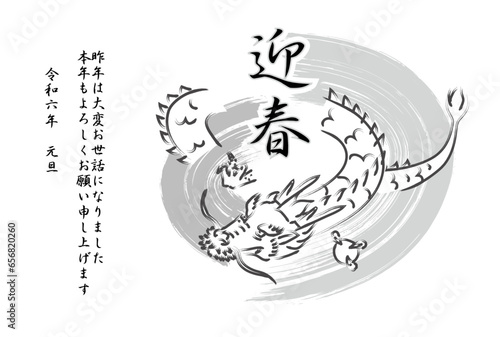 迎春
昨年は大変お世話になりました
本年もよろしくお願い申し上げます
令和六年　元旦
Adobe Stock | #656820260
Adobe Stock